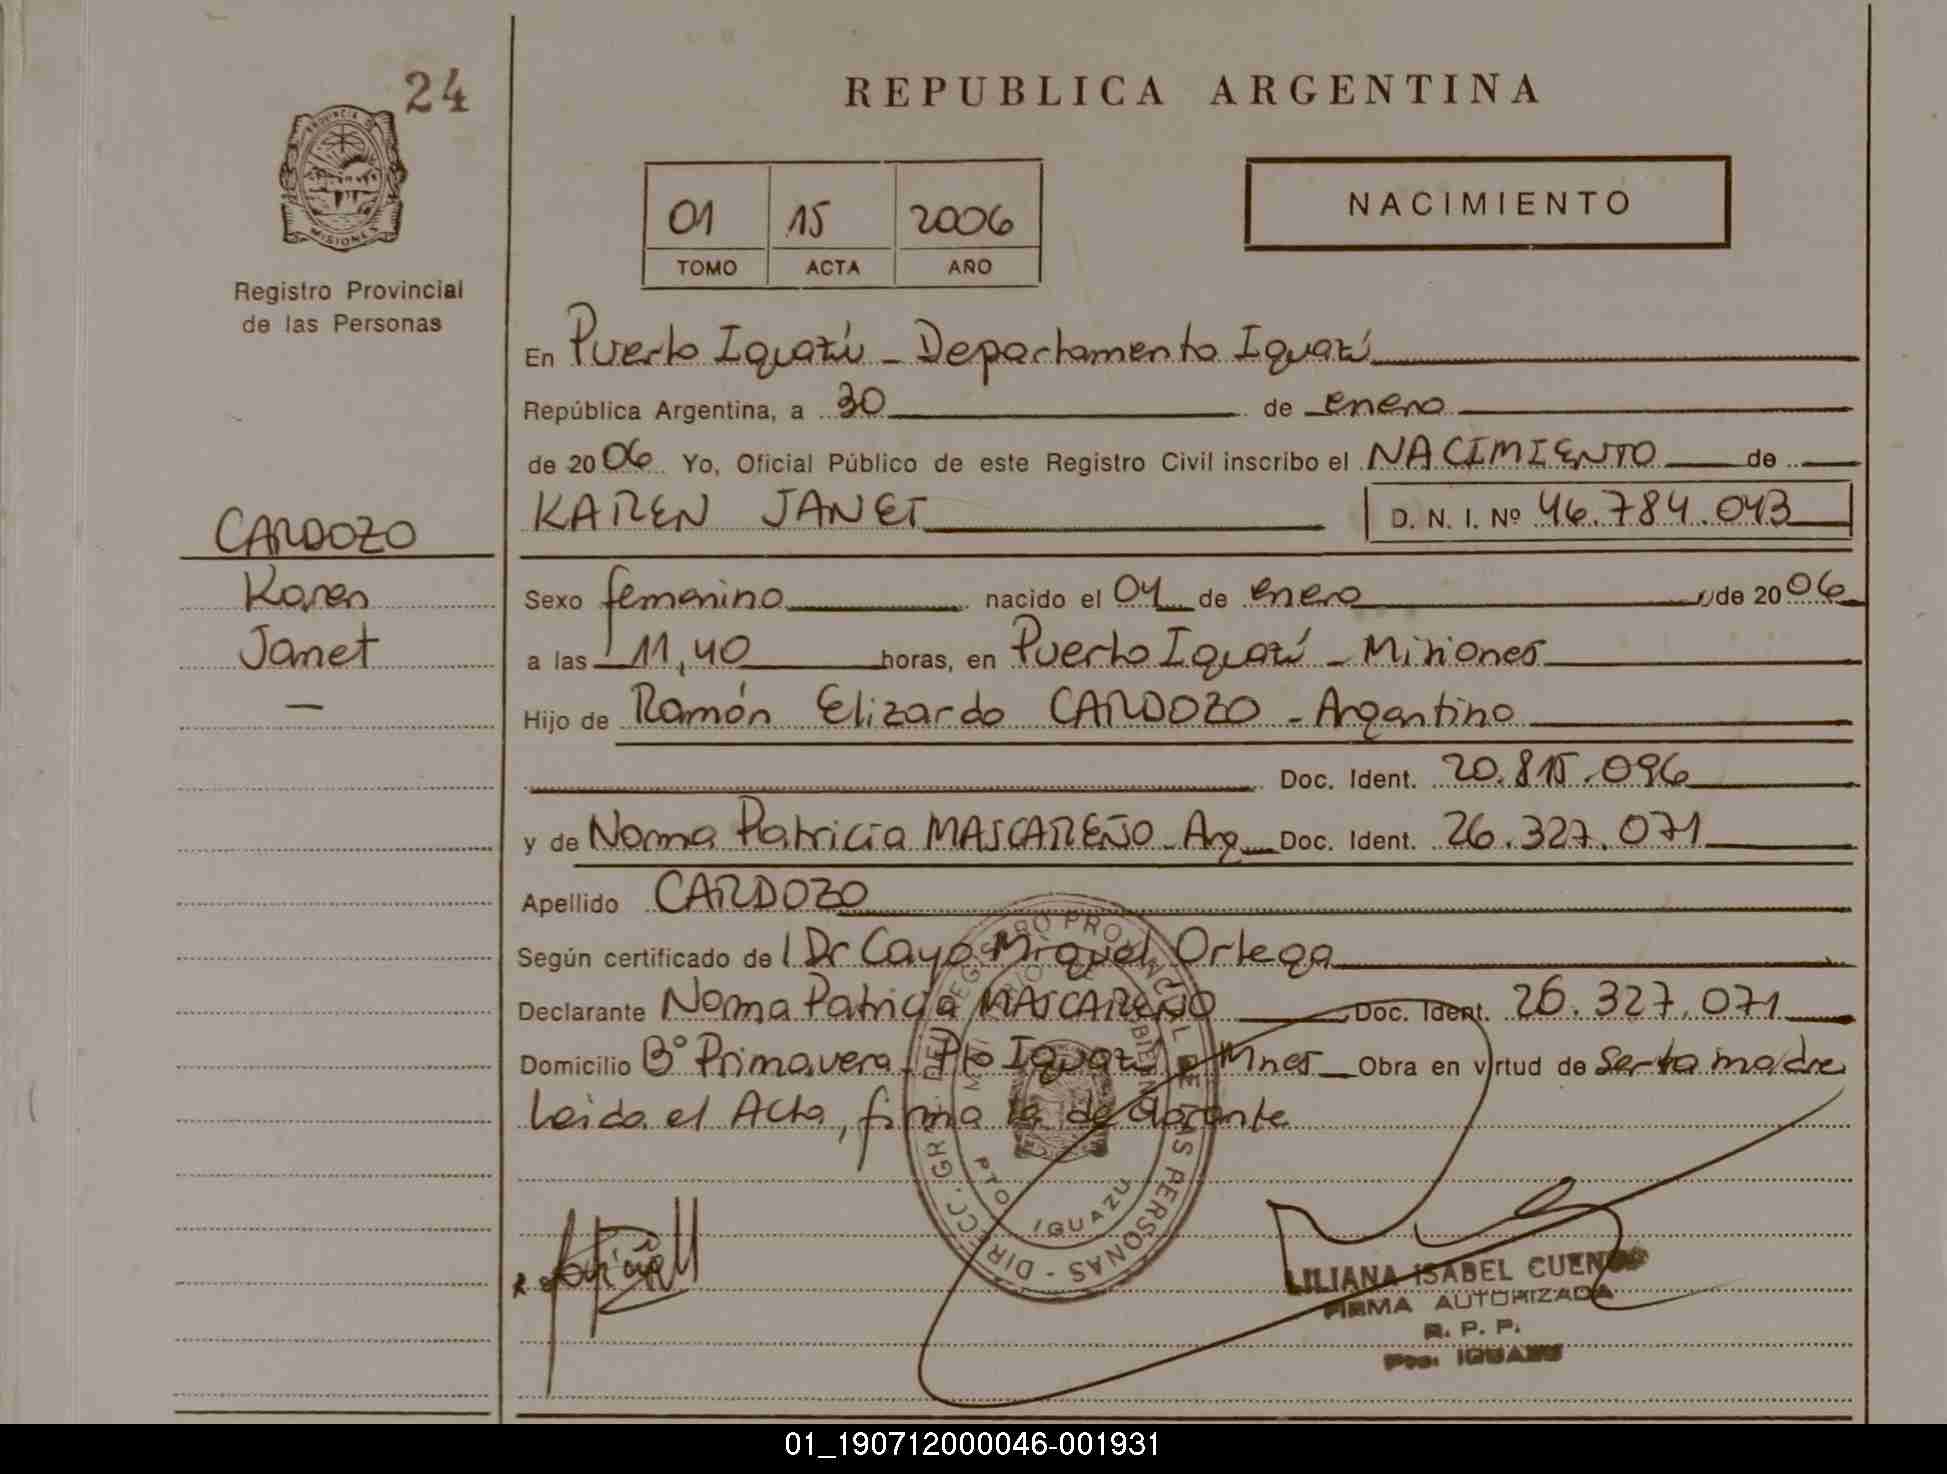 24
PROVINCIA DE
MISIONES
Registro Provincial
de las Personas
CARDOZO
Karen
Janet
—
REPUBLICA ARGENTINA
01 15 2006
TOMO ACTA AÑO
NACIMIENTO
En Puerto Iguazú - Departamento Iguazú
República Argentina, a 30 de enero
de 2006 Yo, Oficial Público de este Registro Civil inscribo el NACIMIENTO de
KAREN JANET D. N. I. Nº 46.784.043
Sexo femenino nacido el 04 de enero de 2006
a las 11,40 horas, en Puerto Iguazú - Misiones
Hijo de Ramón Elizardo CARDOZO - Argentino
Doc. Ident. 20.815.096
y de Norma Patricia MASCAREÑO - Arg Doc. Ident. 26.327.071
Apellido CARDOZO
Según certificado de l Dr Cayo Miguel Ortega
Declarante Norma Patricia MASCAREÑO Doc. Ident. 26.327.071
Domicilio Bº Primavera - Pto Iguazú - Mnes Obra en virtud de ser la madre
Leida el Acta, firma la declarante
REGISTRO PROVINCIAL DE LAS PERSONAS - DIRECC. GRAL. DEL
PTO IGUAZU
LILIANA ISABEL
FIRMA AUTORIZADA
R. P. P.
Pto. IGUAZU
01_190712000046-001931